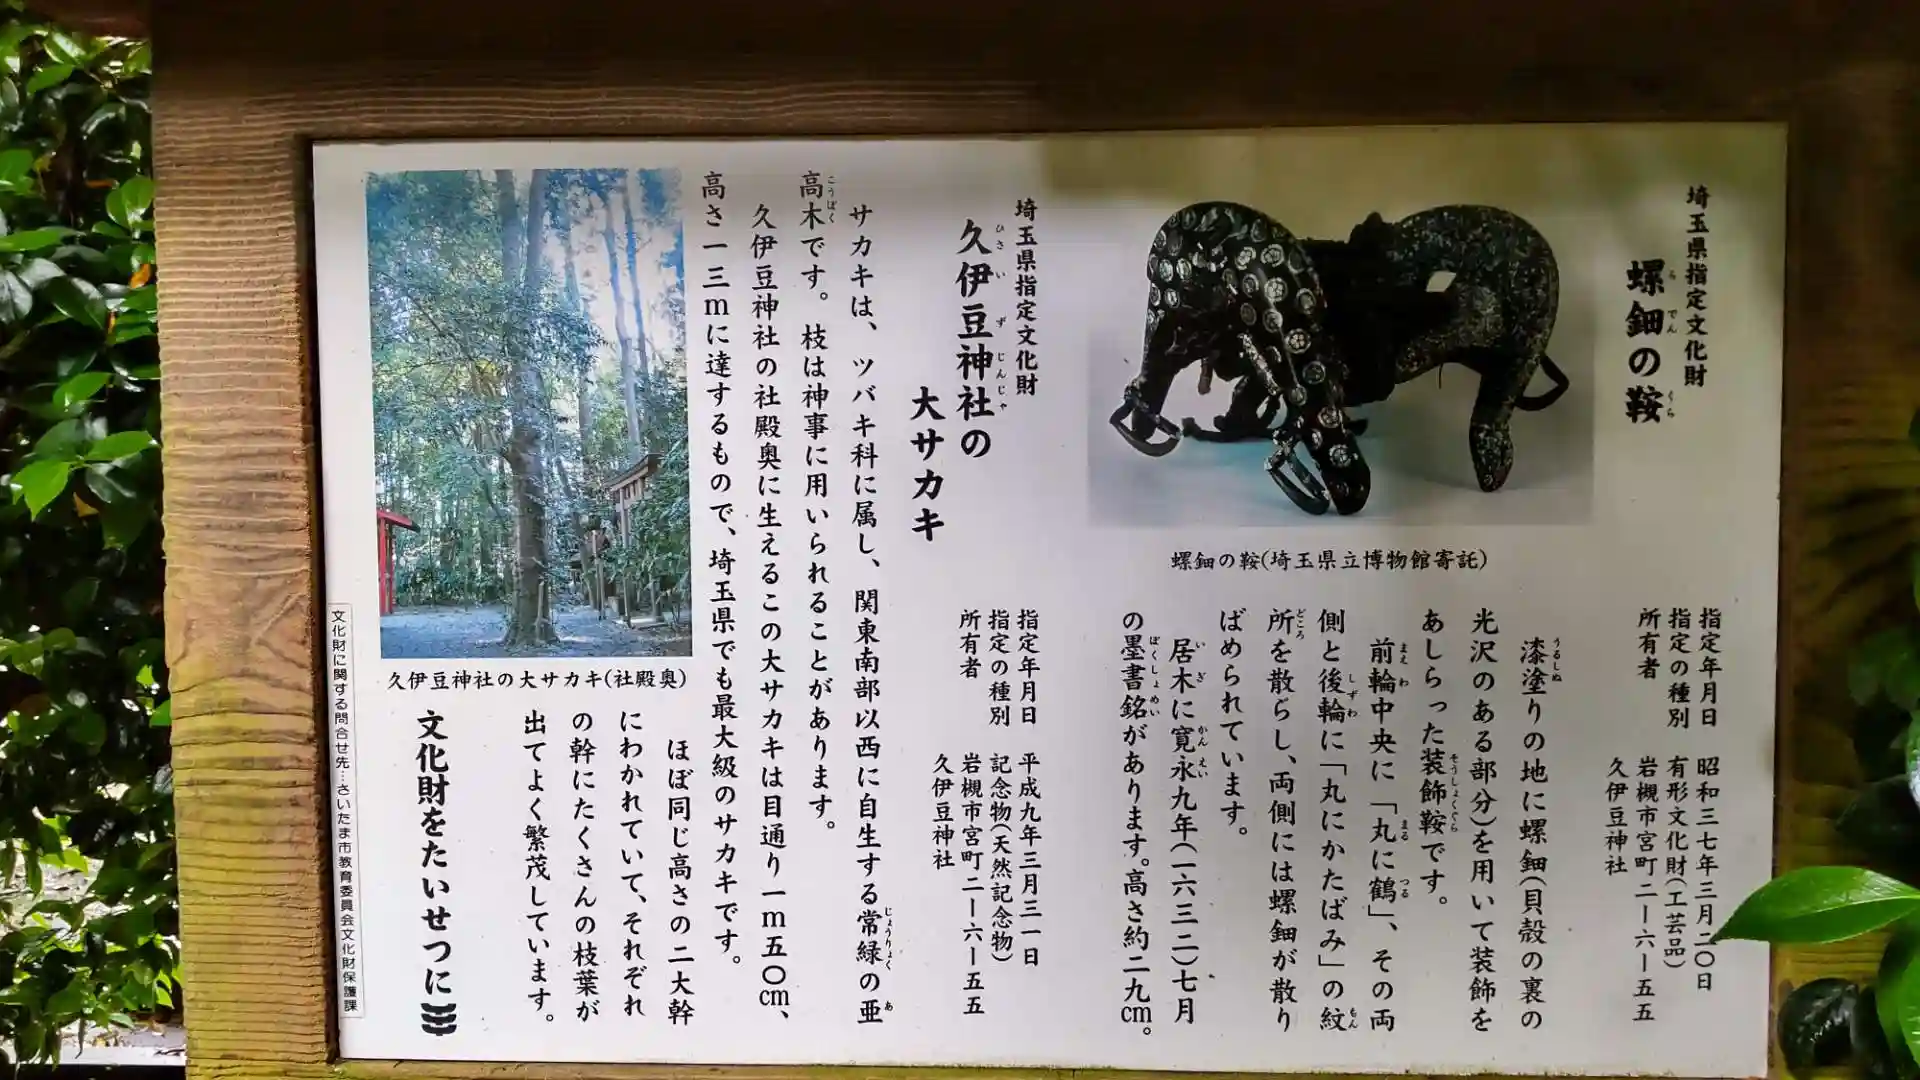 埼玉県指定文化財
螺鈿の鞍
らでん くら
螺鈿の鞍(埼玉県立博物館寄託)
指定年月日 昭和三七年三月二〇日
指定の種別 有形文化財(工芸品)
所有者 岩槻市宮町二ー六ー五五
久伊豆神社
漆塗りの地に螺鈿(貝殻の裏の
うるしぬ
光沢のある部分)を用いて装飾を
あしらった装飾鞍です。
そうしょくぐら
前輪中央に「丸に鶴」、その両
まえわ まる つる
側と後輪に「丸にかたばみ」の紋
しずわ もん
所を散らし、両側には螺鈿が散り
どころ
ばめられています。
居木に寛永九年(一六三二)七月
いぎ かんえい
の墨書銘があります。高さ約二九cm。
ぼくしょめい
埼玉県指定文化財
久伊豆神社の
ひさいずじんじゃ
大サカキ
指定年月日 平成九年三月三一日
指定の種別 記念物(天然記念物)
所有者 岩槻市宮町二ー六ー五五
久伊豆神社
サカキは、ツバキ科に属し、関東南部以西に自生する常緑の亜
じょうりょく あ
高木です。枝は神事に用いられることがあります。
こうぼく
久伊豆神社の社殿奥に生えるこの大サカキは目通り一m五〇cm、
高さ一三mに達するもので、埼玉県でも最大級のサカキです。
久伊豆神社の大サカキ(社殿奥)
ほぼ同じ高さの二大幹
にわかれていて、それぞれ
の幹にたくさんの枝葉が
出てよく繁茂しています。
文化財をたいせつに
文化財に関する問合せ先…さいたま市教育委員会文化財保護課